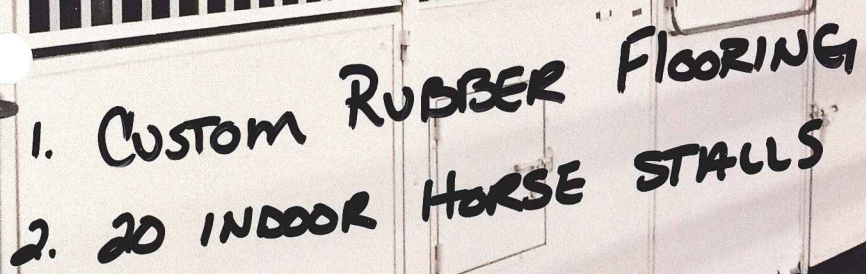 1. Custom Rubber Flooring
2. 20 Indoor Horse Stalls